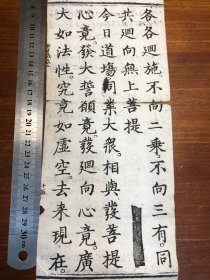 各各迴施不向二乘不向三有同
共迴向無上菩提
今日道場同業大衆相與發菩提
心竟發大誓願竟發迴向心竟廣
大如法性究竟如虛空去来現在